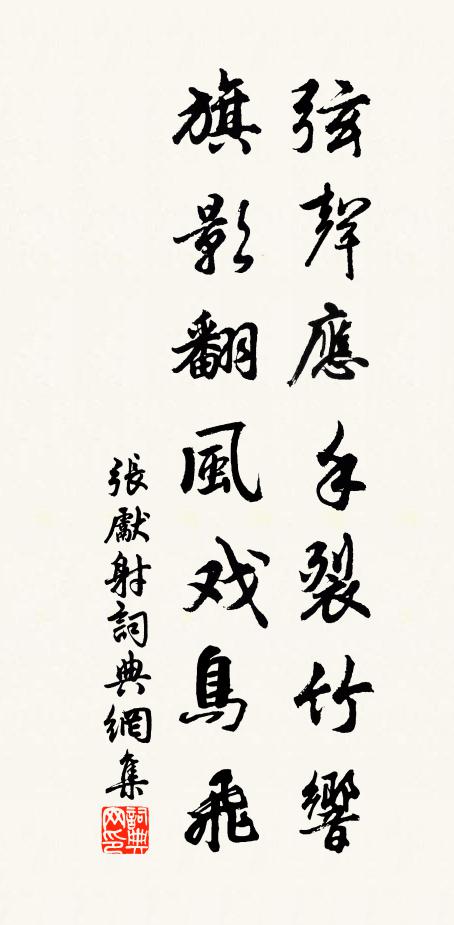 弦聲應手裂竹響
旗影翻風戏鳥飛
張獻射詞典網集
詞典網印